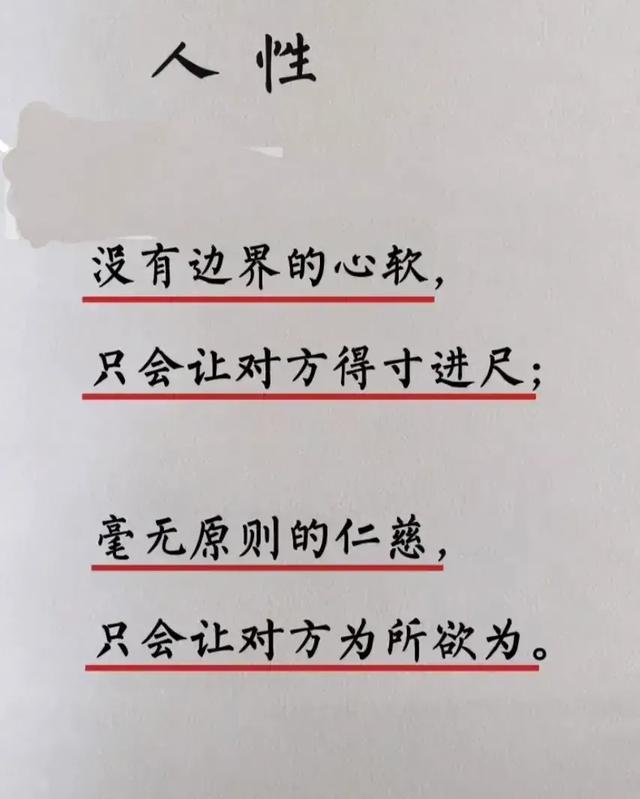 人性
没有边界的心软，
只会让对方得寸进尺；
毫无原则的仁慈，
只会让对方为所欲为。